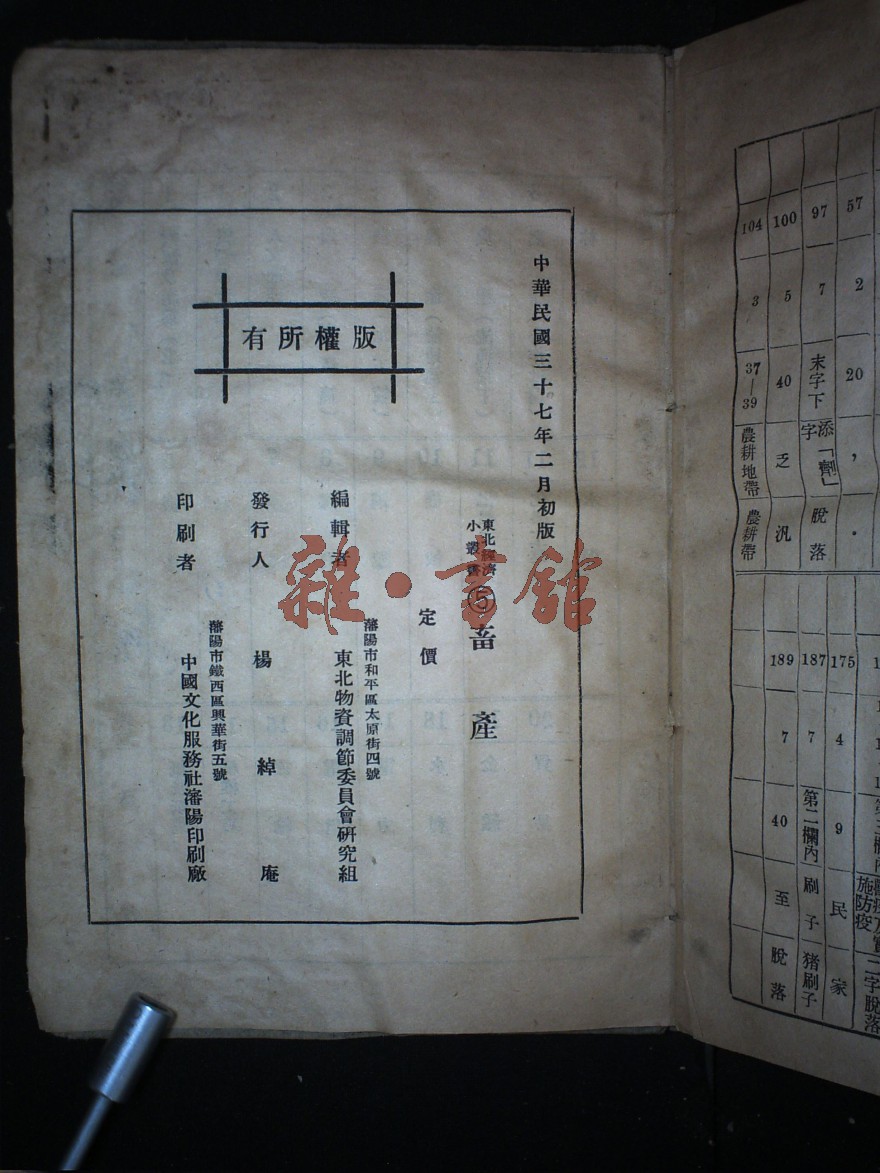 中華民國三十七年二月初版
東北經濟
小叢書
⑤畜產
定價
版權所有
編輯者
瀋陽市和平區太原街四號
東北物資調節委員會研究組
發行人 楊綽庵
瀋陽市鐵西區興華街五號
印刷者 中國文化服務社瀋陽印刷廠
雜·書館
57 2 20 , .
97 7 末字下 添「劑」字 脫落
100 5 40 乏 汎
104 3 37—39 農耕地帶 農耕帶
175 4 9 民 家
187 7 第二欄內 刷子 猪刷子
189 7 40 至 脫落